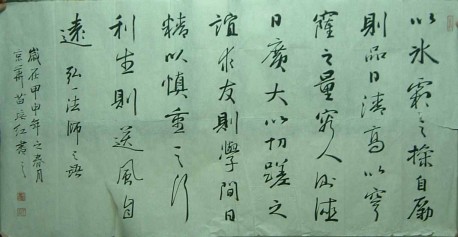 以冰霜之操自励
则品日清高以穹
窿之量容人则德
日广大以切磋之
谊求友则学问日
精以慎重之行
利生则道风自
远 弘一法师之语
岁在甲申年之春月
京华苗培红书之